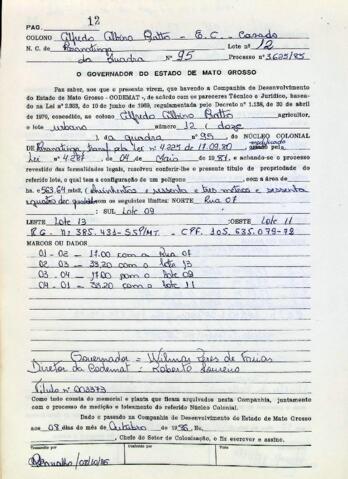 PAG. 12
COLONO Alfredo Albino Batto - E.C. - Casado
N. C. de Paranatinga Lote nº 12
da Quadra Nº 95 Processo nº 3625/85
O GOVERNADOR DO ESTADO DE MATO GROSSO
Faz saber, aos que o presente virem, que havendo a Companhia de Desenvolvimento
do Estado de Mato Grosso - CODEMAT -, de acordo com os pareceres Técnico e Jurídico, basea-
do na Lei nº 2.863, de 10 de junho de 1969, regulamentada pelo Decreto nº 1.138, de 30 de abril
de 1970, concedido, ao colono Alfredo Albino Batto agricultor,
o lote urbano número 12 (doze
) da quadra nº 95 DO NÚCLEO COLONIAL
DE Paranatinga pela Lei nº 4.225 de 17.09.80 modificado pela
Lei nº 4.287, de 04 de Maio de 1981, e achando-se o processo
revestido das formalidades legais, resolveu conferir-lhe o presente título de propriedade do
referido lote, qual tem a configuração de um polígono , com a área de
ha. e 563.64 mts2 (quinhentos e sessenta e três metros e sessenta
e quatro dec. quad.) com os seguintes limites: NORTE Rua 07
: SUL Lote 09
LESTE Lote 13 :OESTE Lote 11
R.G. Nº 385.431-SSP/MT. - CPF. 105.635.079-72
MARCOS OU DADOS
01 - 02 - 17.00 com a Rua 07
02 03 - 33,20 com o lote 13
03 - 04 - 17.00 com o lote 09
04 - 01 - 33,20 com o lote 11
Governador = Wilmar Peres de Farias
Diretor da Codemat: Roberto Loureiro
Título nº 003373
Como tudo consta do memorial e planta que ficam arquivados nesta Companhia, juntamente
com o processo de medição e loteamento do referido Núcleo Colonial.
Dado e passado na Companhia de Desenvolvimento do Estado de Mato Grosso
aos 08 dias do mês de Outubro de 1986. Eu,
, Chefe do Setor de Colonização, o fiz escrever e assino.